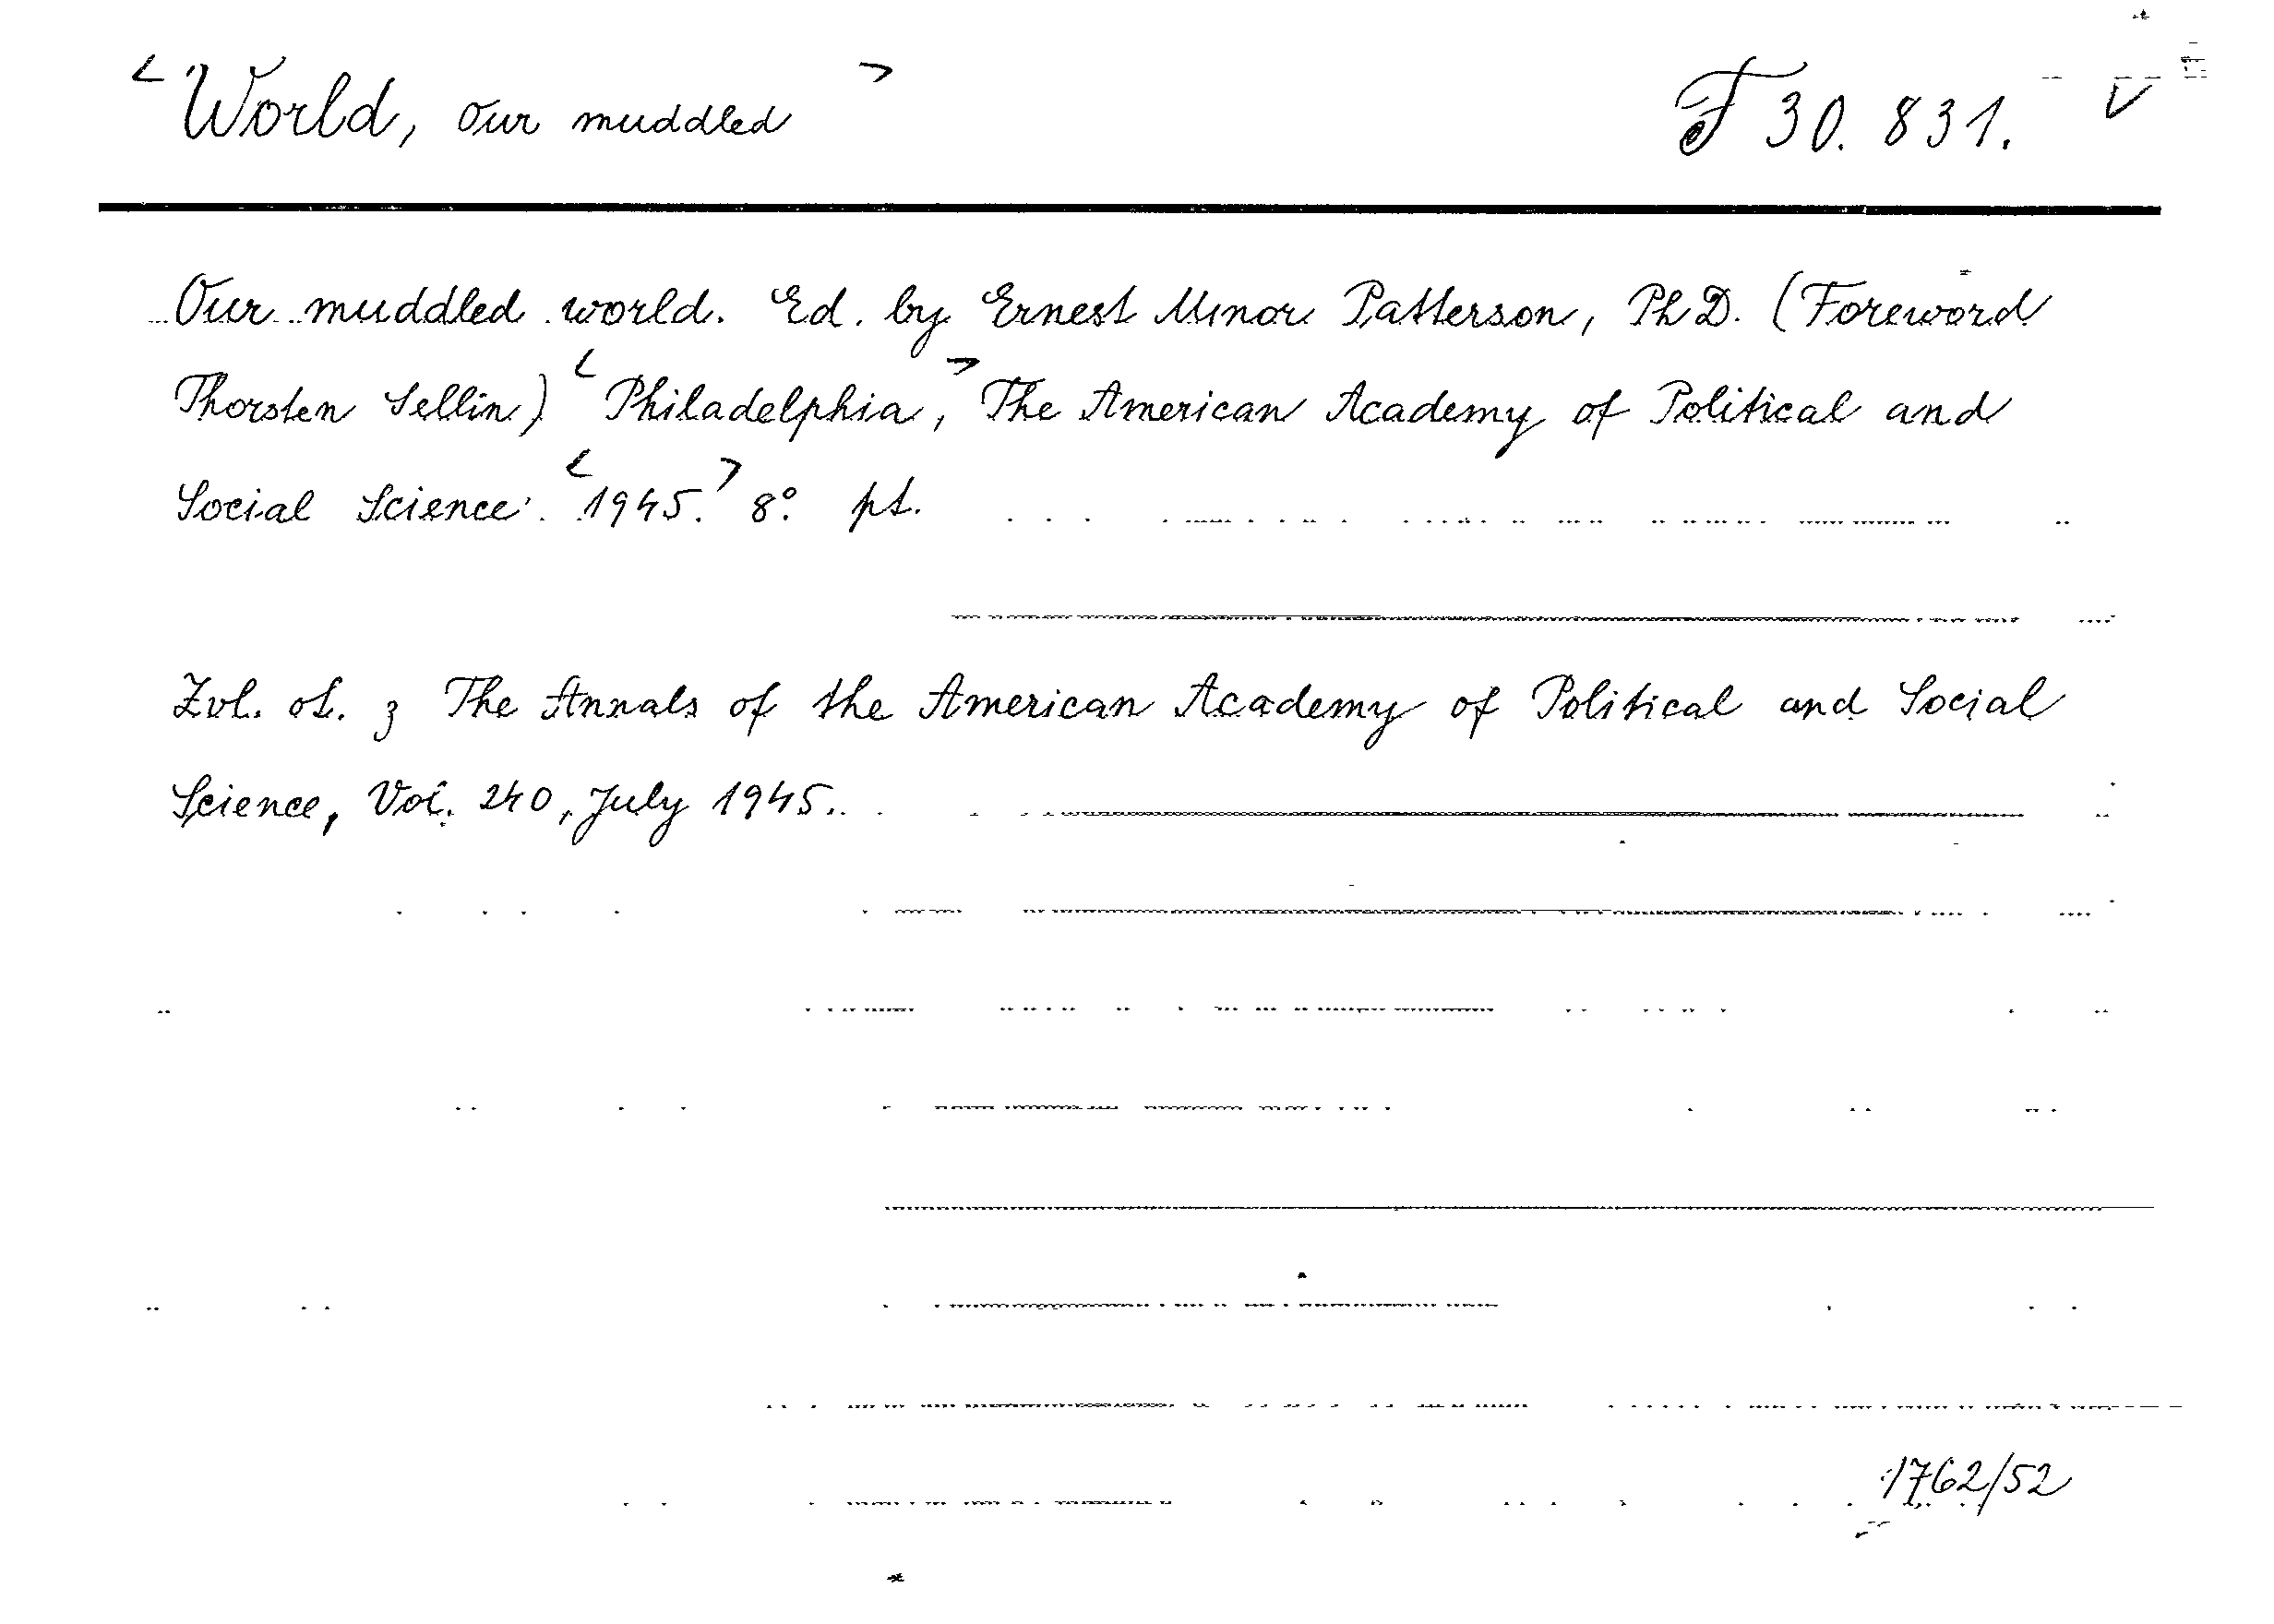 <World, our muddled> F 30.831. V
Our muddled world. Ed. by Ernest Minor Patterson, Ph D. (Foreword
Thorsten Sellin) <Philadelphia,> The American Academy of Political and
Social Science. <1945.> 8°. pt.
Zvl. ot. z The Annals of the American Academy of Political and Social
Science, Vol. 240, July 1945.
1762/52